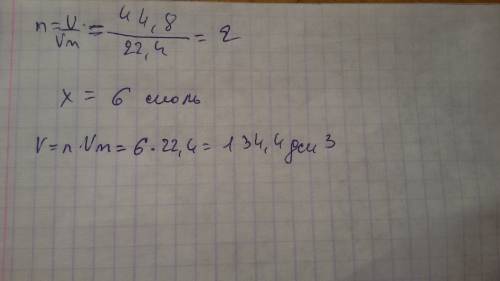 n = V/Vm = 44,8/22,4 = 2
x = 6 моль
V = n · Vm = 6 · 22,4 = 134,4 дм3